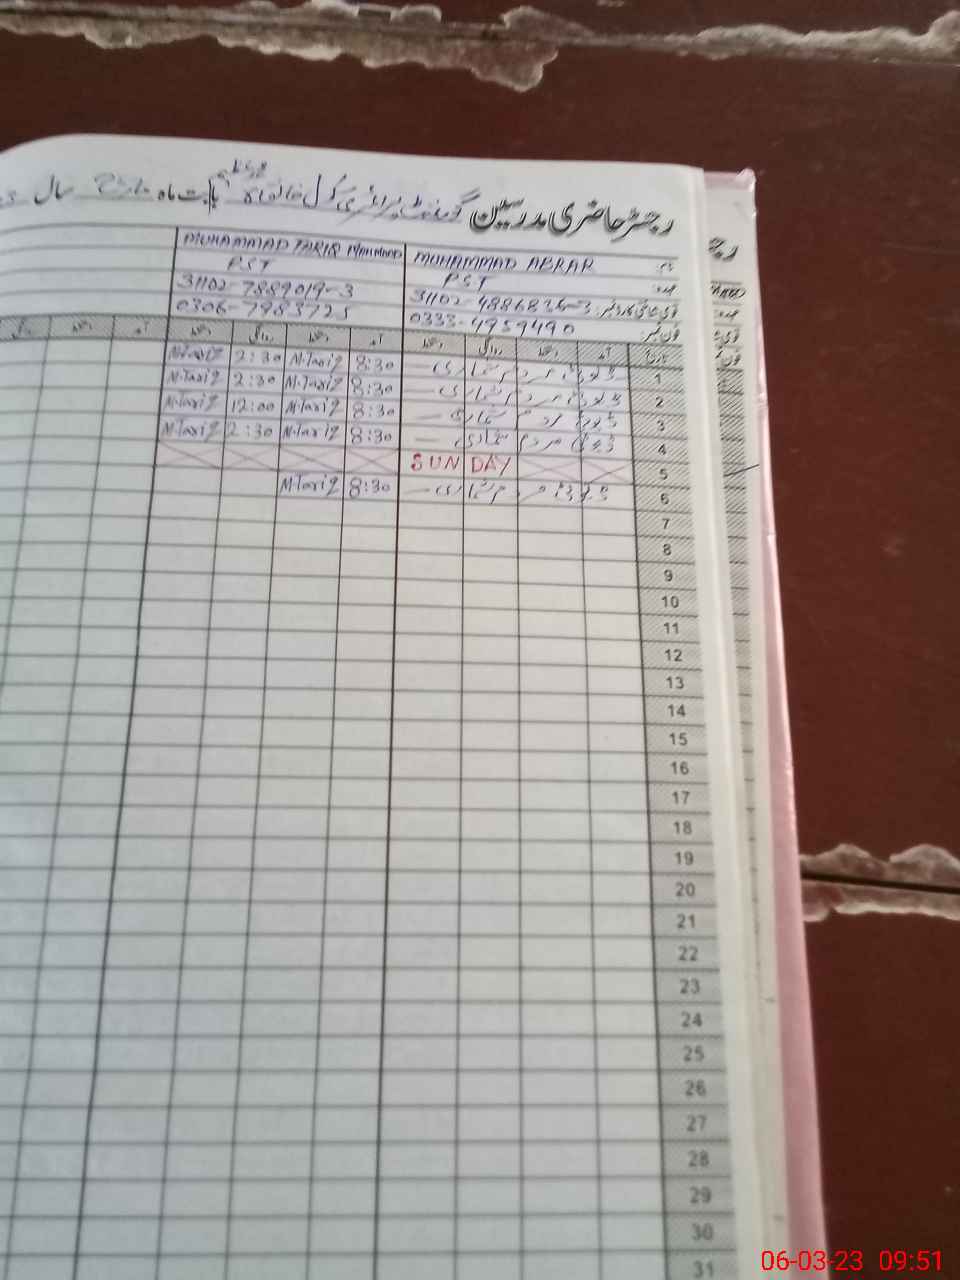 رجسٹر حاضری مدرسین گورنمنٹ پرائمری سکول بابت ماہ مارچ سال
نام MUHAMMAD ABRAR MUHAMMAD TARIQ MAHMOOD
عہدہ PST PST
قومی شناختی کارڈ نمبر: 31102-4886836-3 31102-7889019-3
فون نمبر: 0333-4959490 0306-7983725
تاریخ آمد دستخط روانگی دستخط آمد دستخط روانگی دستخط آمد دستخط روانگی
1 ڈیوٹی مردم شماری 8:30 M.Tariq 2:30 M.Tariq
2 ڈیوٹی مردم شماری 8:30 M.Tariq 2:30 M.Tariq
3 ڈیوٹی مردم شماری 8:30 M.Tariq 12:00 M.Tariq
4 ڈیوٹی مردم شماری 8:30 M.Tariq 2:30 M.Tariq
5 SUNDAY
6 ڈیوٹی مردم شماری 8:30 M.Tariq
7
8
9
10
11
12
13
14
15
16
17
18
19
20
21
22
23
24
25
26
27
28
29
30
31
06-03-23 09:51